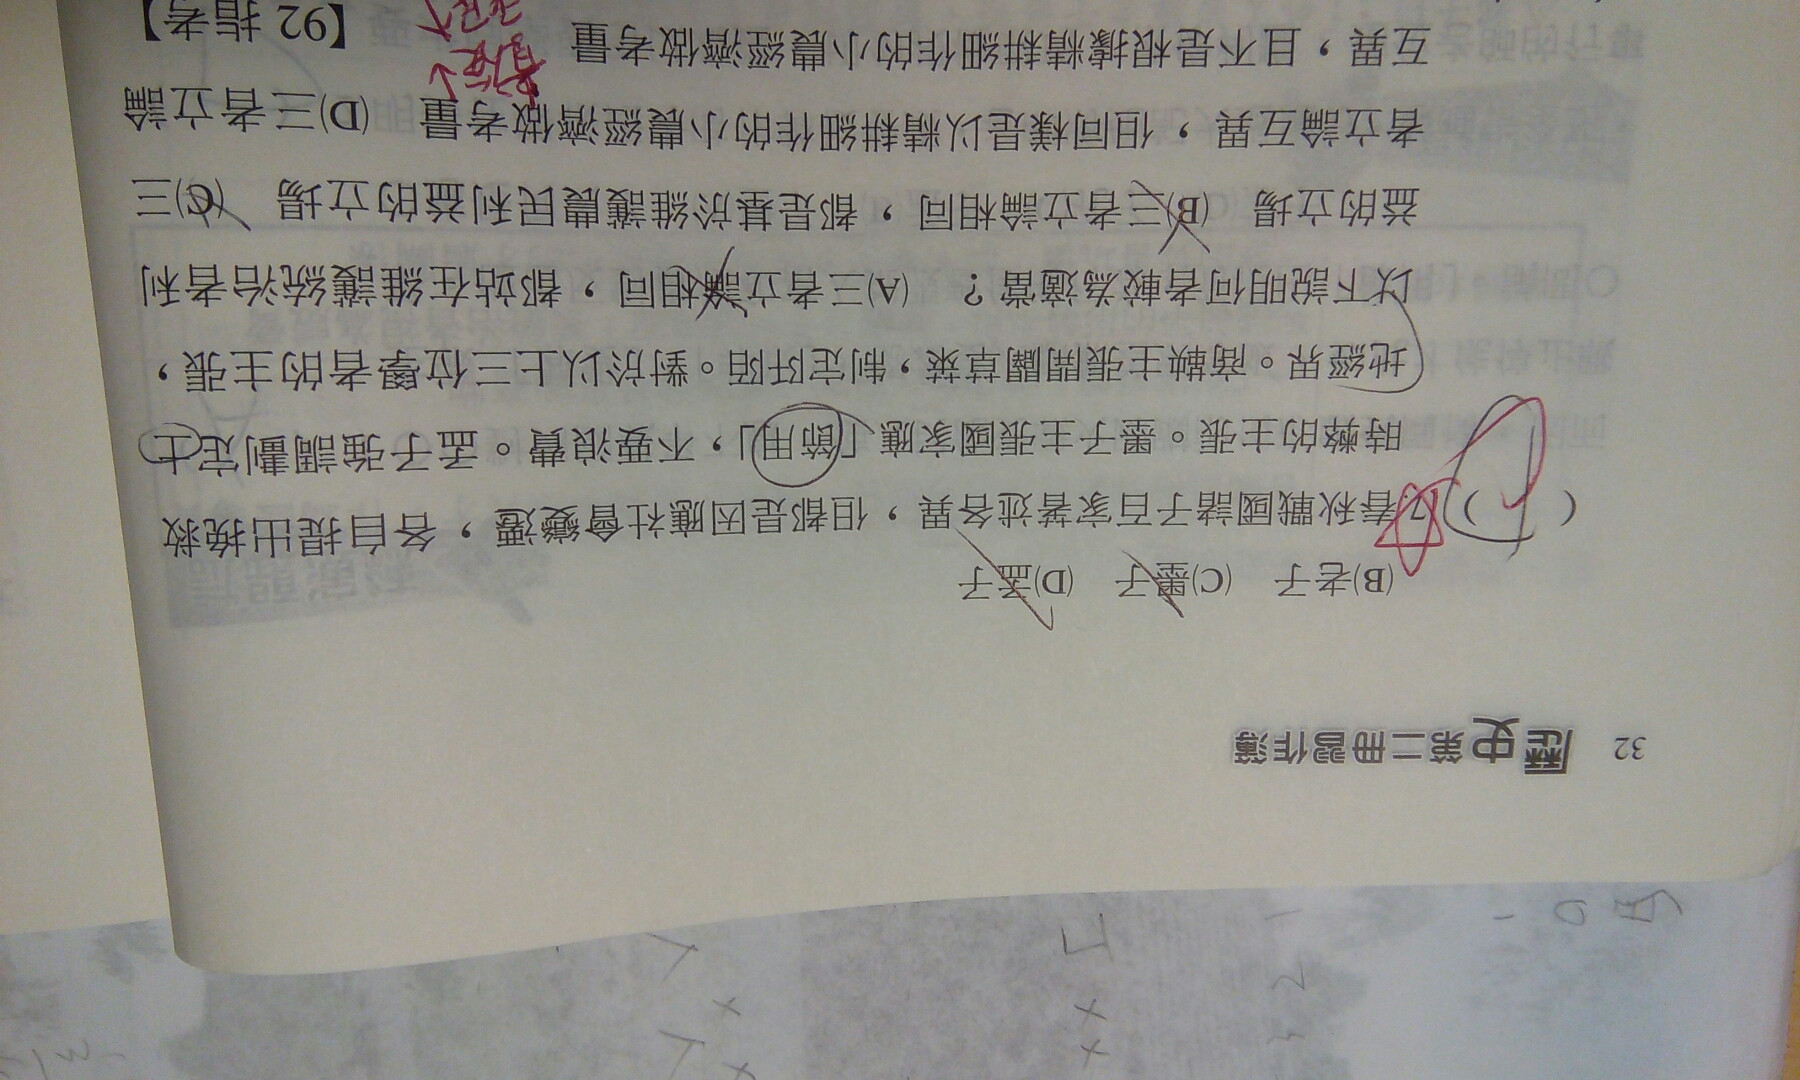 32 歷史第二冊習作簿
(B)老子 (C)墨子 (D)孟子
( )7.春秋戰國諸子百家著述各異，但都是因應社會變遷，各自提出挽救
時弊的主張。墨子主張國家應「節用」，不要浪費。孟子強調劃定土
地經界。商鞅主張開闢草萊，制定阡陌。對於以上三位學者的主張，
以下說明何者較為適當？ (A)三者立論相同，都站在維護統治者利
益的立場 (B)三者立論相同，都是基於維護農民利益的立場 (C)三
者立論互異，但同樣是以精耕細作的小農經濟做考量 (D)三者立論
互異，且不是根據精耕細作的小農經濟做考量 【92 指考】